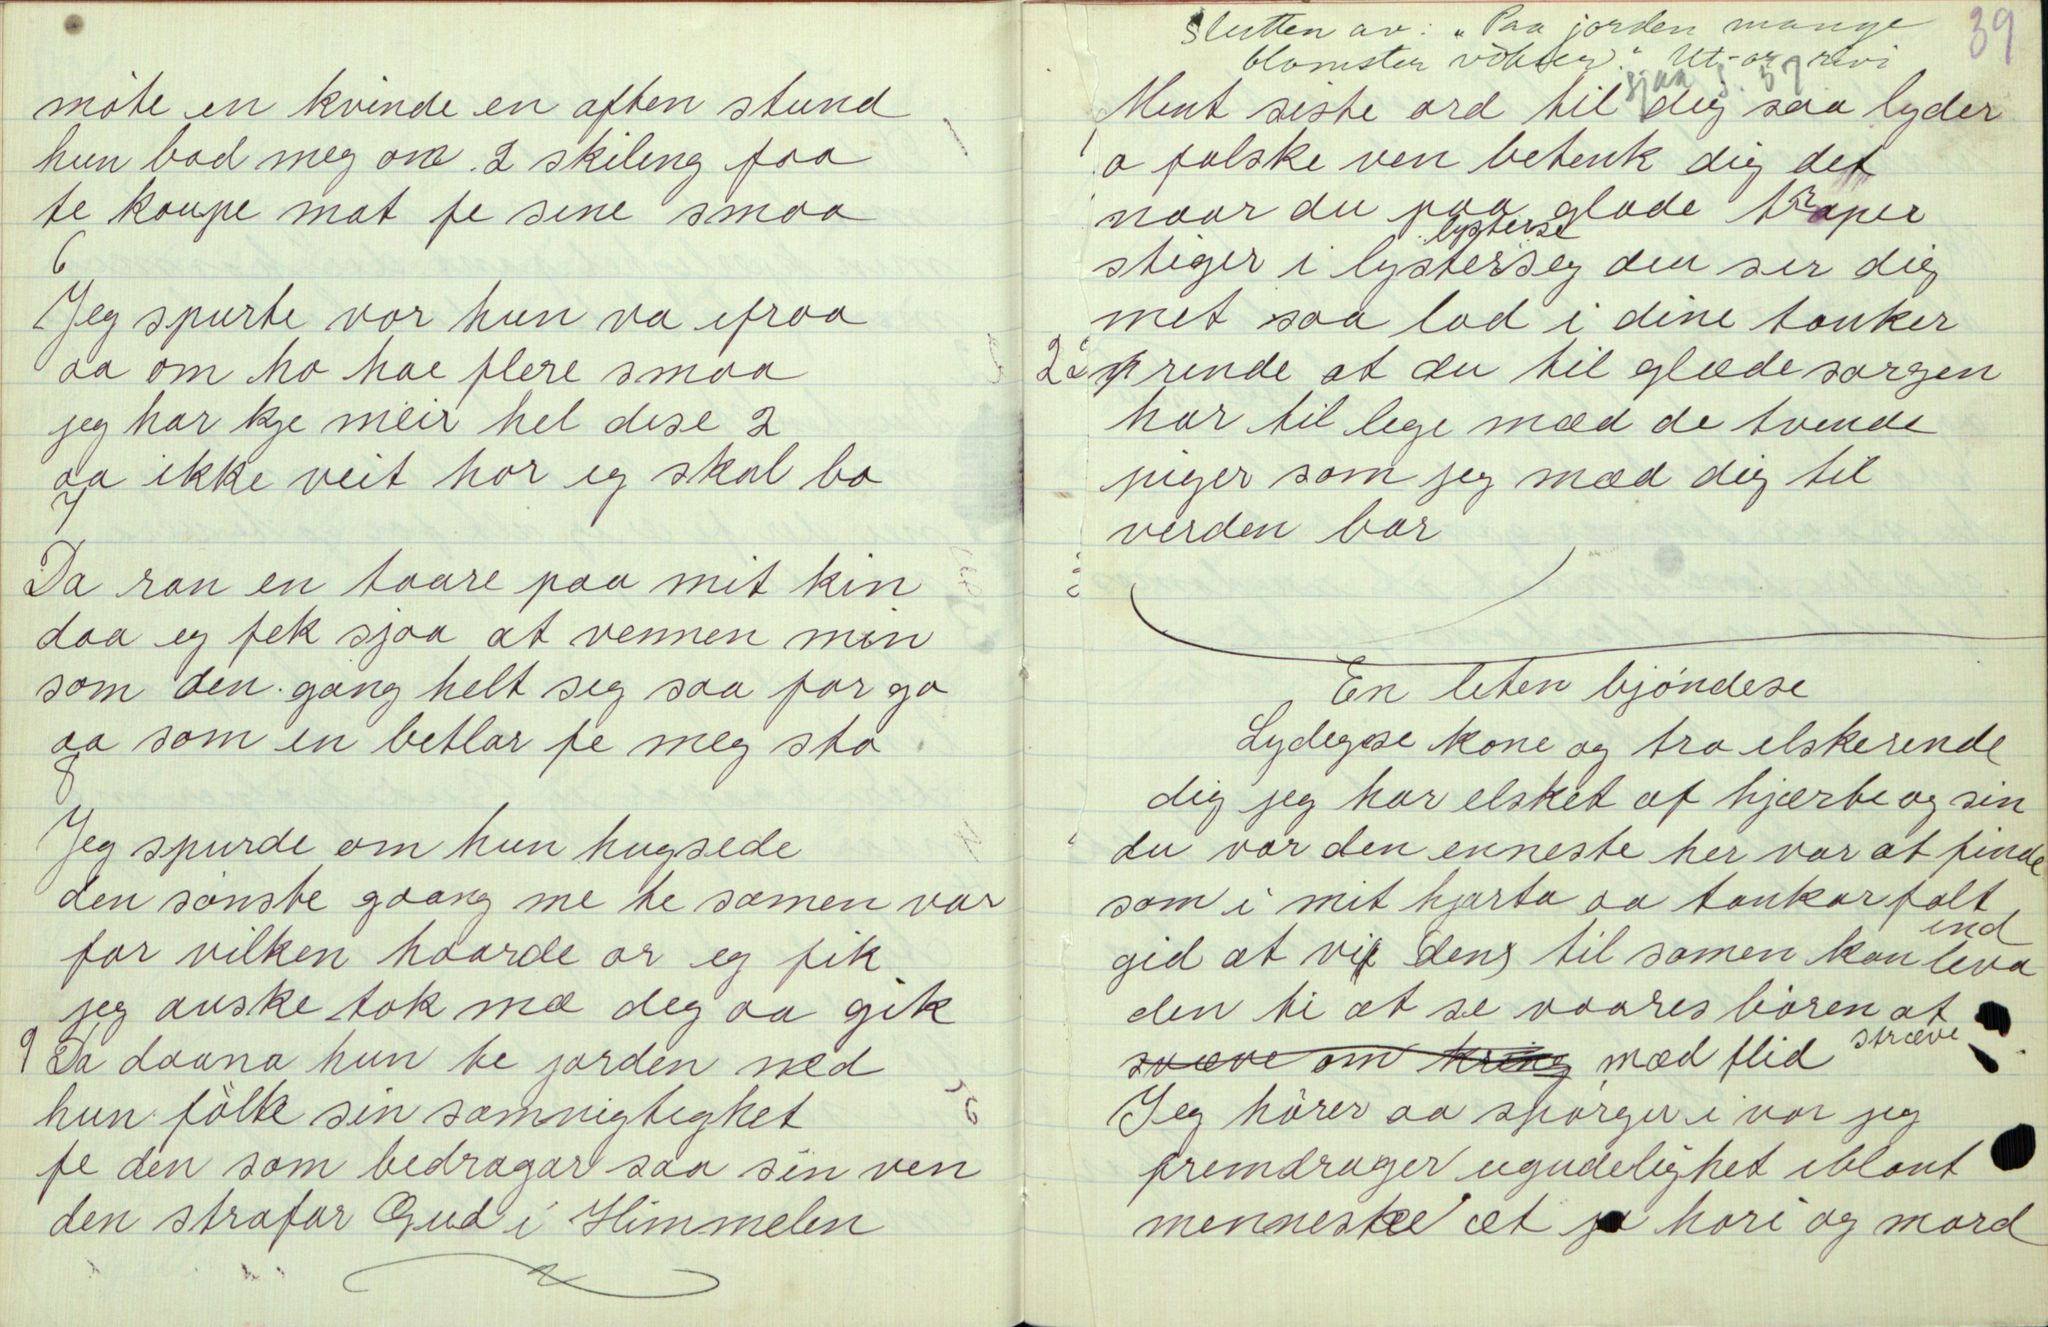 möte en kvinde en aften stund
hun bad meg om 2 skileng faa
te kaupe mat fe sine smaa
6
Jeg spurte vor hun va ifraa
aa om ho hae flere smaa
jeg har kje meir hel dese 2
aa ikke veit hor eg skal bo
7
Da ran en taare paa mit kin
daa eg fek sjaa at vennen min
som den gang helt seg saa for go
aa som en betlar fe meg sto
8
Jeg spurde om hun hugsede
den sönste gaang me te samen var
for vilken haarde or eg fik
jeg anske tok mæ deg aa gik
9 Da daana hun te jorden ned
hun fölte sin samnigtigket
fe den som bedragar saa sin ven
den strafar Gud i Himmelen
39
Slutten av: "Paa jorden mange
blomster vokser." Ut-or rivi
sjaa s. 57
Ment siste ord til dig saa lyder
o falske ven betenk dig det
naar du paa glade traper
lysterse
stiger i lysterseg den ser dig
met saa lad i dine tanker
2 prende at du til glæde sorgen
har til lege mæd de tvende
piger som jeg mæd dig til
verden bar
En leten bjöndese
Lydegse kone og tro elskerende
dig jeg har elsket af hjærte og sin
du var den enneste her var at finde
som i mit hjarta aa tankar falt
ind
gid at vi den til samen kan leva
den ti at se vaares bören at
svæve om kring mæd flid stræve
Jeg hörer aa spörger i vor jeg
fremdrager ugudelighet iblant
menneske æt ja hori og mord